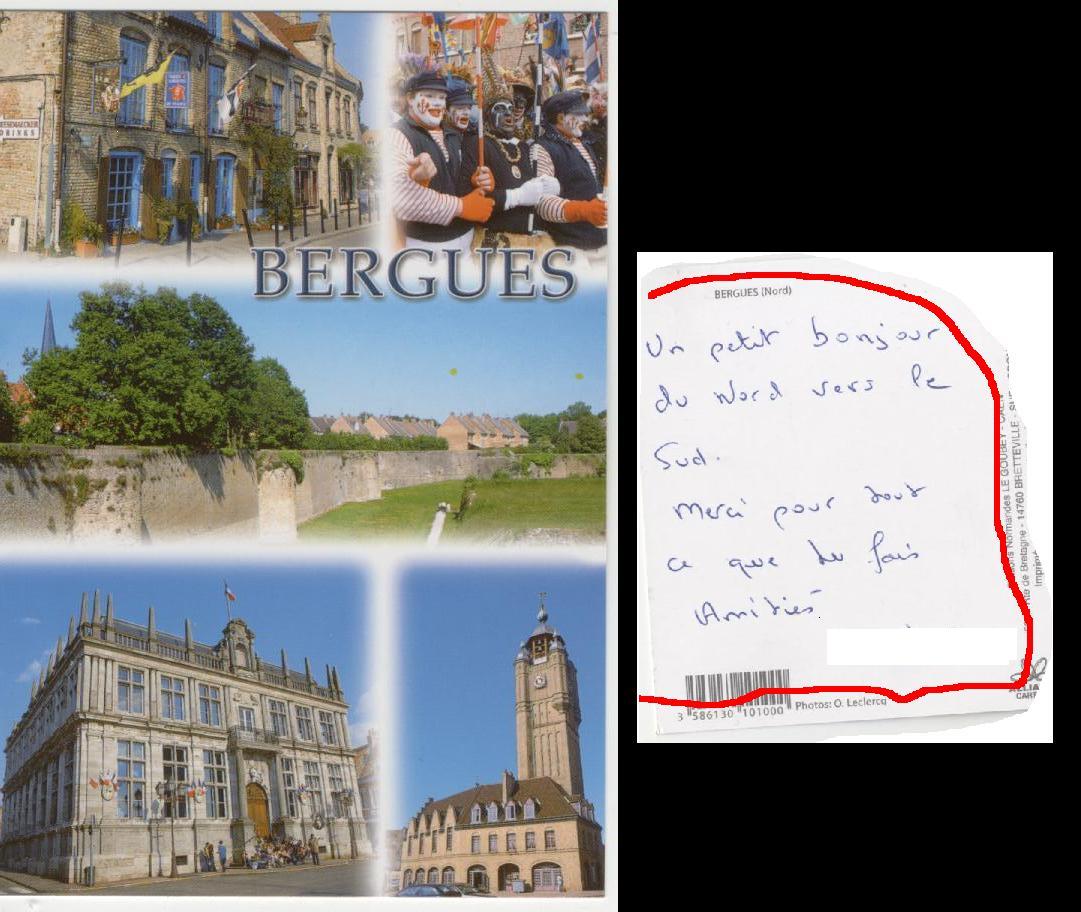 DRINKS
BERGUES
BERGUES (Nord)
Un petit bonjour
du Nord vers le
Sud.
Merci pour tout
ce que tu fais
Amitiés
3 586130 101000
Photos: O. Leclercq
Normandes LE GOUBEY - CAEN
de Bretagne - 14760 BRETTEVILLE - 
CART